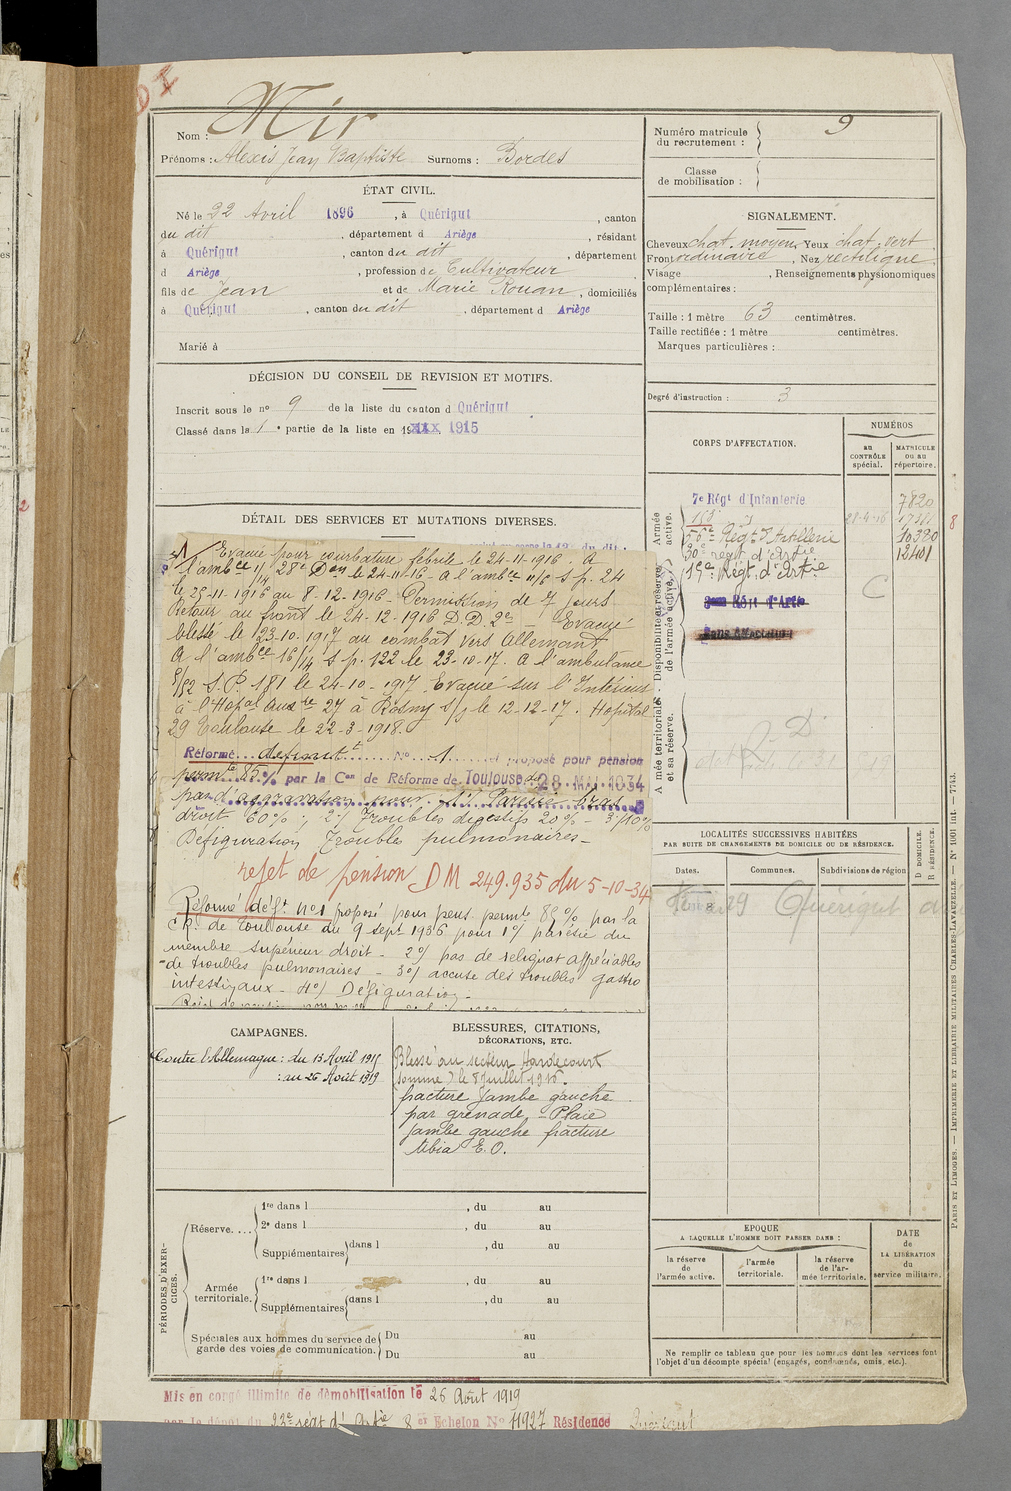 Nom : Mir
Prénoms : Alexis Jean Baptiste Surnoms : Bordes
ÉTAT CIVIL.
Né le 22 Avril 1896, à Quérigut, canton
du dit, département d Ariège, résidant
à Quérigut, canton du dit, département
d Ariège, profession de Cultivateur
fils de Jean et de Marie Rouan, domiciliés
à Quérigut, canton du dit, département d Ariège
Marié à
DÉCISION DU CONSEIL DE REVISION ET MOTIFS.
Inscrit sous le nº 9 de la liste du canton d Quérigut
Classé dans la 1e partie de la liste en 19 1915
DÉTAIL DES SERVICES ET MUTATIONS DIVERSES.
Evacué pour courbature fébrile le 24-11-1916. A
l'ambce 11/14 28e Don le 24-11-16. A l'ambce 11/8 S.p. 24
le 25-11-1916 au 8-12-1916. Permission de 7 jours
Retour au front le 24-12-1916 D.D. Evacué
blessé le 23.10.1917 au combat vers Allemant
A l'ambce 16/14 S.p. 122 le 23-10-17. A l'ambulance
S.P. 181 le 24-10-1917. Evacué sur l'Intérieur
à l'Hopal Auxre 27 à Rosny s/s le 12-12-17. Hopital
29 Toulouse le 22-3-1918.
Réformé définitt Nº 1 et proposé pour pension
permte 85% par la Con de Réforme de Toulouse du 28 MAI 1934
pas d'aggravation pour 1º/ Parésie bras
droit 60% ; 2º/ Troubles digestifs 20% - 3º/ 10%
Défiguration Troubles pulmonaires -
rejet de pension DM 249.935 du 5-10-34
Réformé déft nº1 proposé pour pens. permte 85% par la
C.R. de Toulouse du 9 sept 1936 pour 1º/ parésie du
membre supérieur droit - 2º/ pas de reliquat appréciables
de troubles pulmonaires - 3º/ accuse des troubles gastro
intestinaux - 4º/ Défiguration -
CAMPAGNES.
Contre l'Allemagne : du 13 Avril 1915
: au 26 Août 1919
BLESSURES, CITATIONS,
DÉCORATIONS, ETC.
Blessé au secteur Hardecourt
(Somme) le 8 Juillet 1916.
fracture jambe gauche
par grenade - Plaie
jambe gauche fracture
tibia E.O.
PÉRIODES D'EXERCICES.
Réserve....
1re dans l , du au
2e dans l , du au
Supplémentaires dans l , du au
Armée territoriale.
1re dans l , du au
Supplémentaires dans l , du au
Spéciales aux hommes du service de garde des voies de communication.
Du au
Du au
Mis en congé illimité de démobilisation le 26 Août 1919
par le dépôt du 22e régt d'Artie 8e Echelon Nº 11927 Résidence Quérigut
Numéro matricule
du recrutement : 9
Classe
de mobilisation :
SIGNALEMENT.
Cheveux chat. moyen Yeux chat. vert
Front ordinaire, Nez rectiligne
Visage , Renseignements physionomiques
complémentaires :
Taille : 1 mètre 63 centimètres.
Taille rectifiée : 1 mètre centimètres.
Marques particulières :
Degré d'instruction : 3
CORPS D'AFFECTATION.
NUMÉROS
au
CONTRÔLE
spécial.
MATRICULE
ou au
répertoire.
Armée active.
Disponibilité et réserve de l'armée active.
Armée territoriale et sa réserve.
7e Régt d'Infanterie 7820
56e Régt d'Artillerie 10380
30e régt d'Artie 12401
15e Régt. d'Artie
C
LOCALITÉS SUCCESSIVES HABITÉES
PAR SUITE DE CHANGEMENTS DE DOMICILE OU DE RÉSIDENCE.
Dates.
Communes.
Subdivisions de région
D DOMICILE.
R RÉSIDENCE.
Quérigut
EPOQUE
A LAQUELLE L'HOMME DOIT PASSER DANS :
la réserve
de
l'armée active.
l'armée
territoriale.
la réserve
de l'ar-
mée territoriale.
DATE
de
LA LIBÉRATION
du
service militaire.
Ne remplir ce tableau que pour les hommes dont les services font
l'objet d'un décompte spécial (engagés, condamnés, omis, etc.).
PARIS ET LIMOGES. — IMPRIMERIE ET LIBRAIRIE MILITAIRES CHARLES-LAVAUZELLE. — Nº 1001 int. — 7743.
8
2